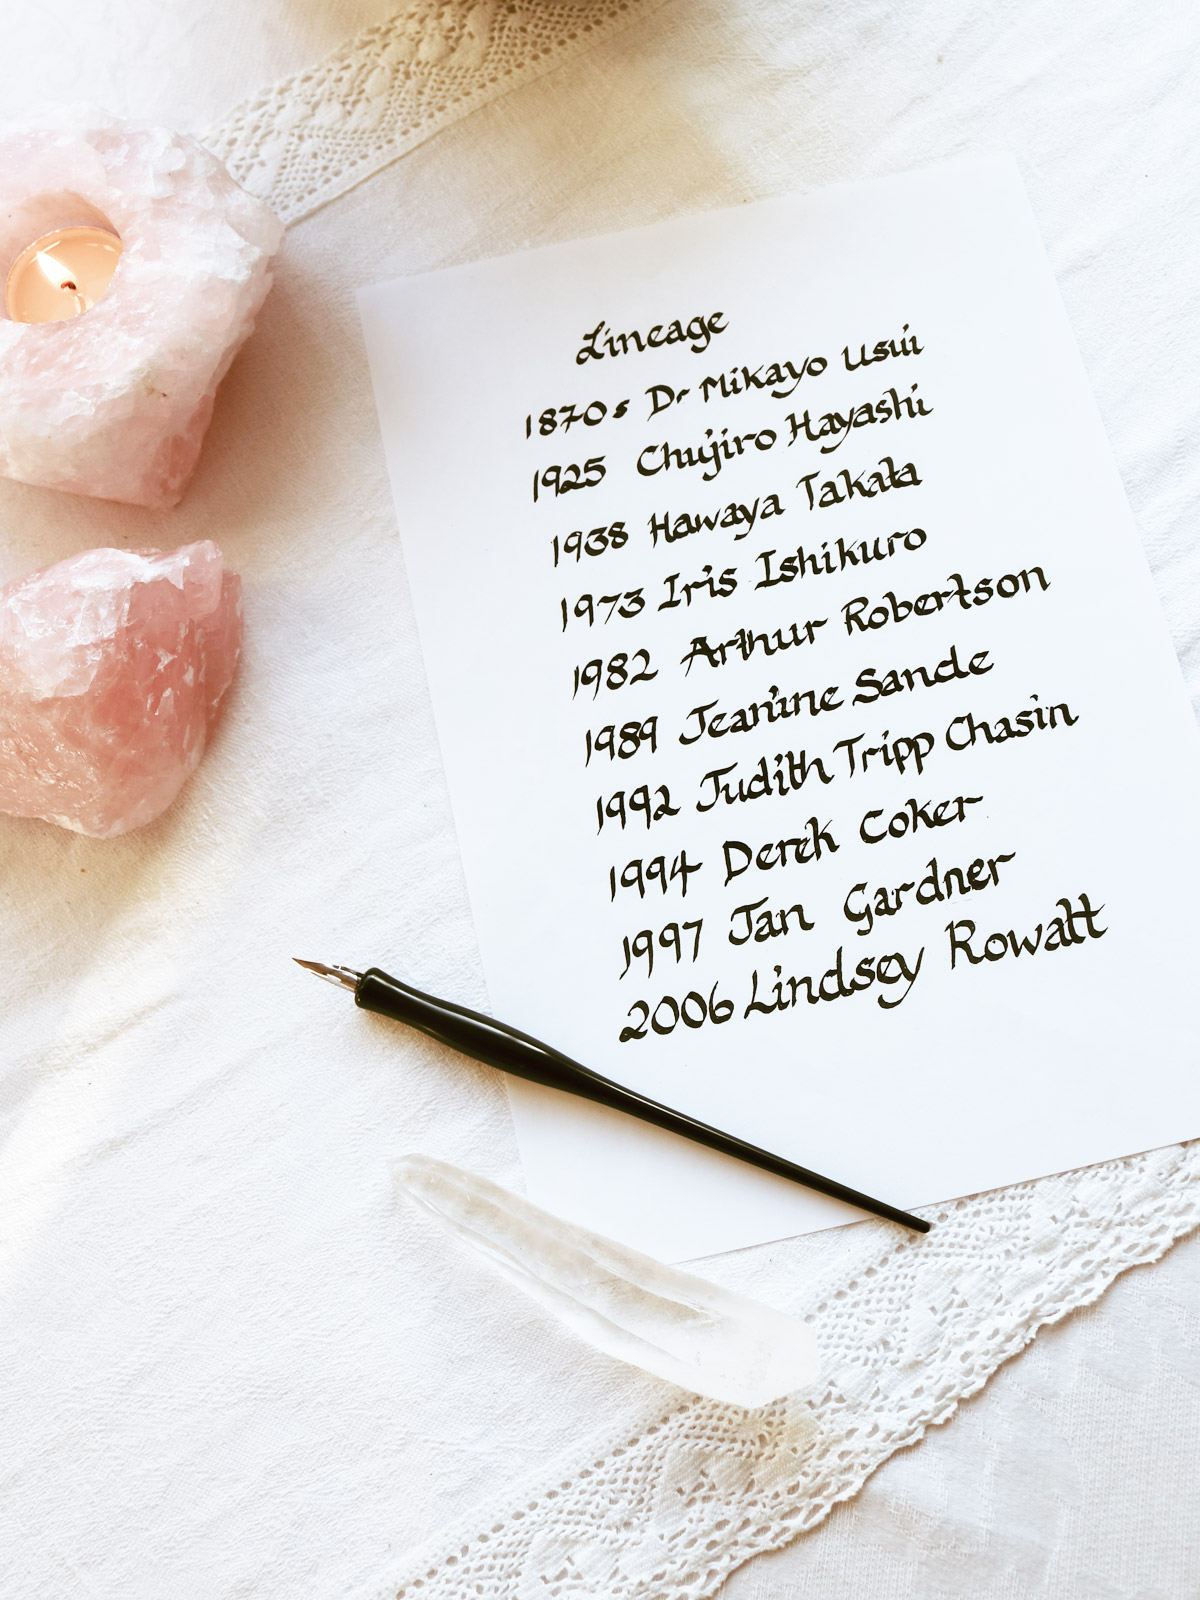 Lineage
1870s Dr Mikayo Usui
1925 Chujiro Hayashi
1938 Hawaya Takata
1973 Iris Ishikuro
1982 Arthur Robertson
1989 Jeanine Sande
1992 Judith Tripp Chasin
1994 Derek Coker
1997 Jan Gardner
2006 Lindsey Rowatt